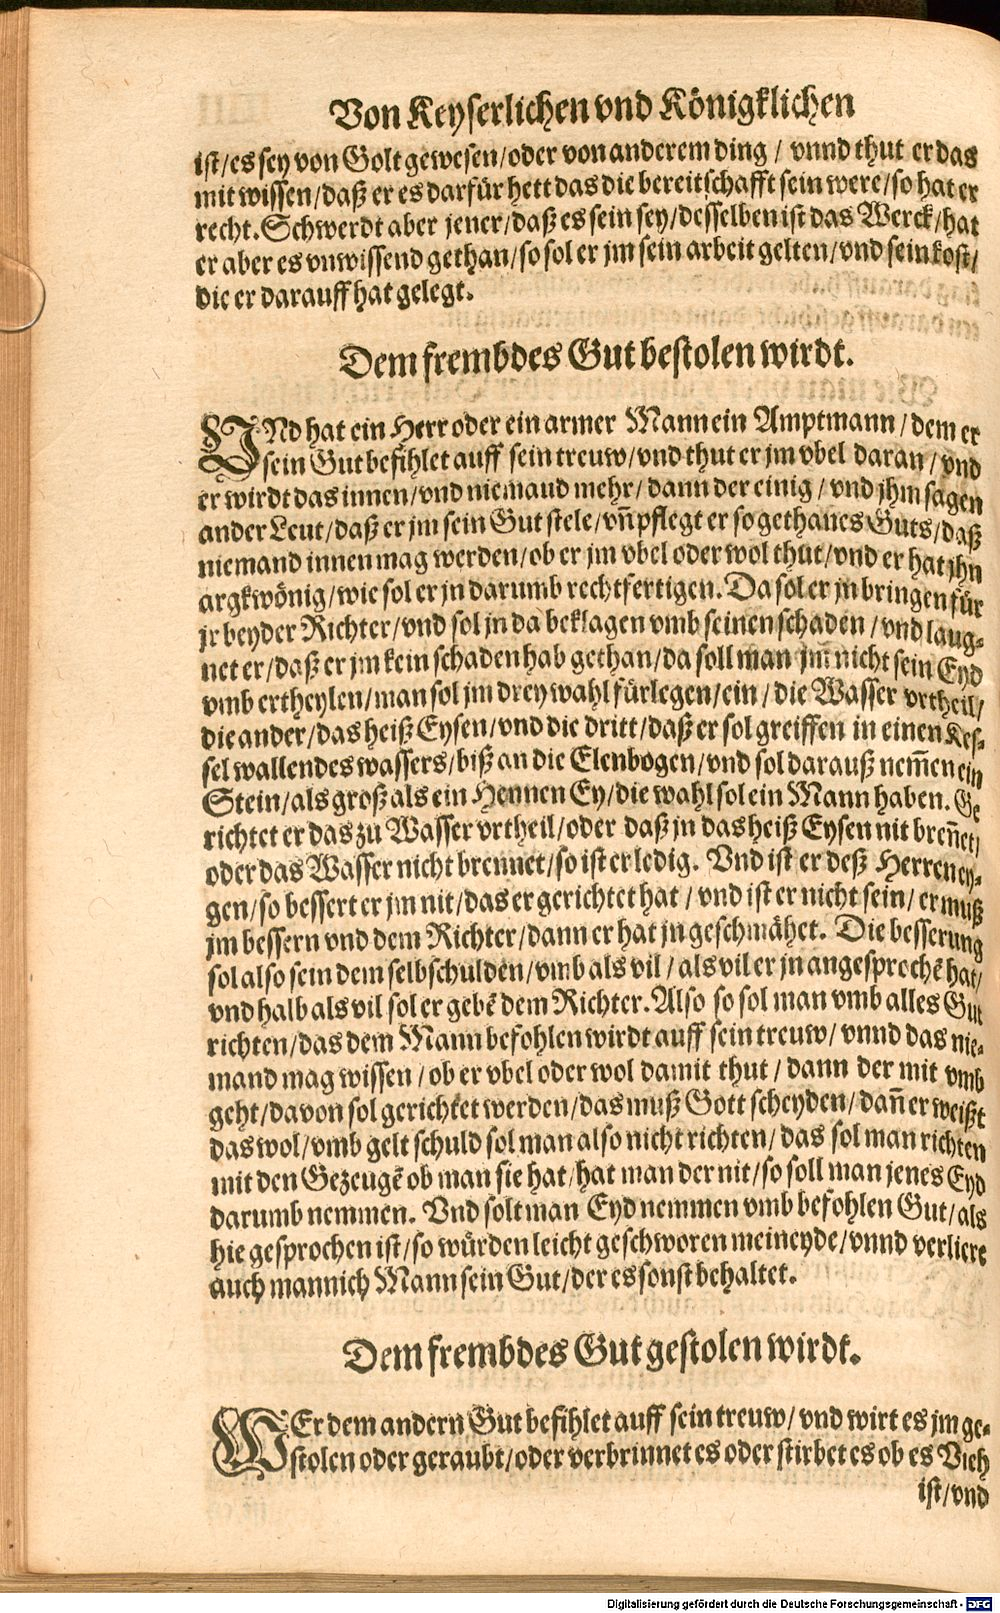 Von Keyserlichen vnd Königklichen
ist/es sey von Golt gewesen/oder von anderem ding / vnnd thut er das
mit wissen/daß er es darfür hett das die bereitschafft sein were/so hat er
recht. Schwerdt aber jener/daß es sein sey/desselben ist das Werck/hat
er aber es vnwissend gethan/so sol er jm sein arbeit gelten/vnd sein kost/
die er darauff hat gelegt.
Dem frembdes Gut bestolen wirdt.
VNd hat ein Herr oder ein armer Mann ein Amptmann / dem er
sein Gut befihlet auff sein treuw/vnd thut er jm vbel daran / vnd
er wirdt das innen/vnd niemand mehr/dann der einig / vnd jhm sagen
ander Leut/daß er jm sein Gut stele/vñ pflegt er so gethanes Guts/daß
niemand innen mag werden/ob er jm vbel oder wol thut/vnd er hat jhn
argkwönig/wie sol er jn darumb rechtfertigen. Da sol er jn bringen für
jr beyder Richter/vnd sol jn da beklagen vmb seinen schaden / vnd laug-
net er/daß er jm kein schaden hab gethan/da soll man jm nicht sein Eyd
vmb ertheylen/man sol jm drey wahl fürlegen/ein / die Wasser vrtheil/
die ander/das heiß Eysen/vnd die dritt/daß er sol greiffen in einen Kes-
sel wallendes wassers/biß an die Elenbogen/vnd sol darauß nem̃en ein
Stein/als groß als ein Hennen Ey/die wahl sol ein Mann haben. Ge
richtet er das zu Wasser vrtheil/oder daß jn das heiß Eysen nit breñet/
oder das Wasser nicht brennet/so ist er ledig. Vnd ist er deß Herren ey-
gen/so bessert er jm nit/das er gerichtet hat / vnd ist er nicht sein/er muß
jm bessern vnd dem Richter/dann er hat jn geschmähet. Die besserung
sol also sein dem selbschulden/vmb als vil / als vil er jn angesprochẽ hat/
vnd halb als vil sol er gebẽ dem Richter. Also so sol man vmb alles Gut
richten/das dem Mann befohlen wirdt auff sein treuw/vnnd das nie-
mand mag wissen/ob er vbel oder wol damit thut / dann der mit vmb
geht/davon sol gerichtet werden/das muß Gott scheyden/dañ er weißt
das wol/vmb gelt schuld sol man also nicht richten/das sol man richten
mit den Gezeugẽ ob man sie hat/hat man der nit/so soll man jenes Eyd
darumb nemmen. Vnd solt man Eyd nemmen vmb befohlen Gut/als
hie gesprochen ist/so würden leicht geschworen meineyde/vnnd verliere
auch mannich Mann sein Gut/der es sonst behaltet.
Dem frembdes Gut gestolen wirdt.
WEr dem andern Gut befihlet auff sein treuw/ vnd wirt es jm ge-
stolen oder geraubt/oder verbrinnet es oder stirbet es ob es Vieh
ist/vnd
Digitalisierung gefördert durch die Deutsche Forschungsgemeinschaft - DFG